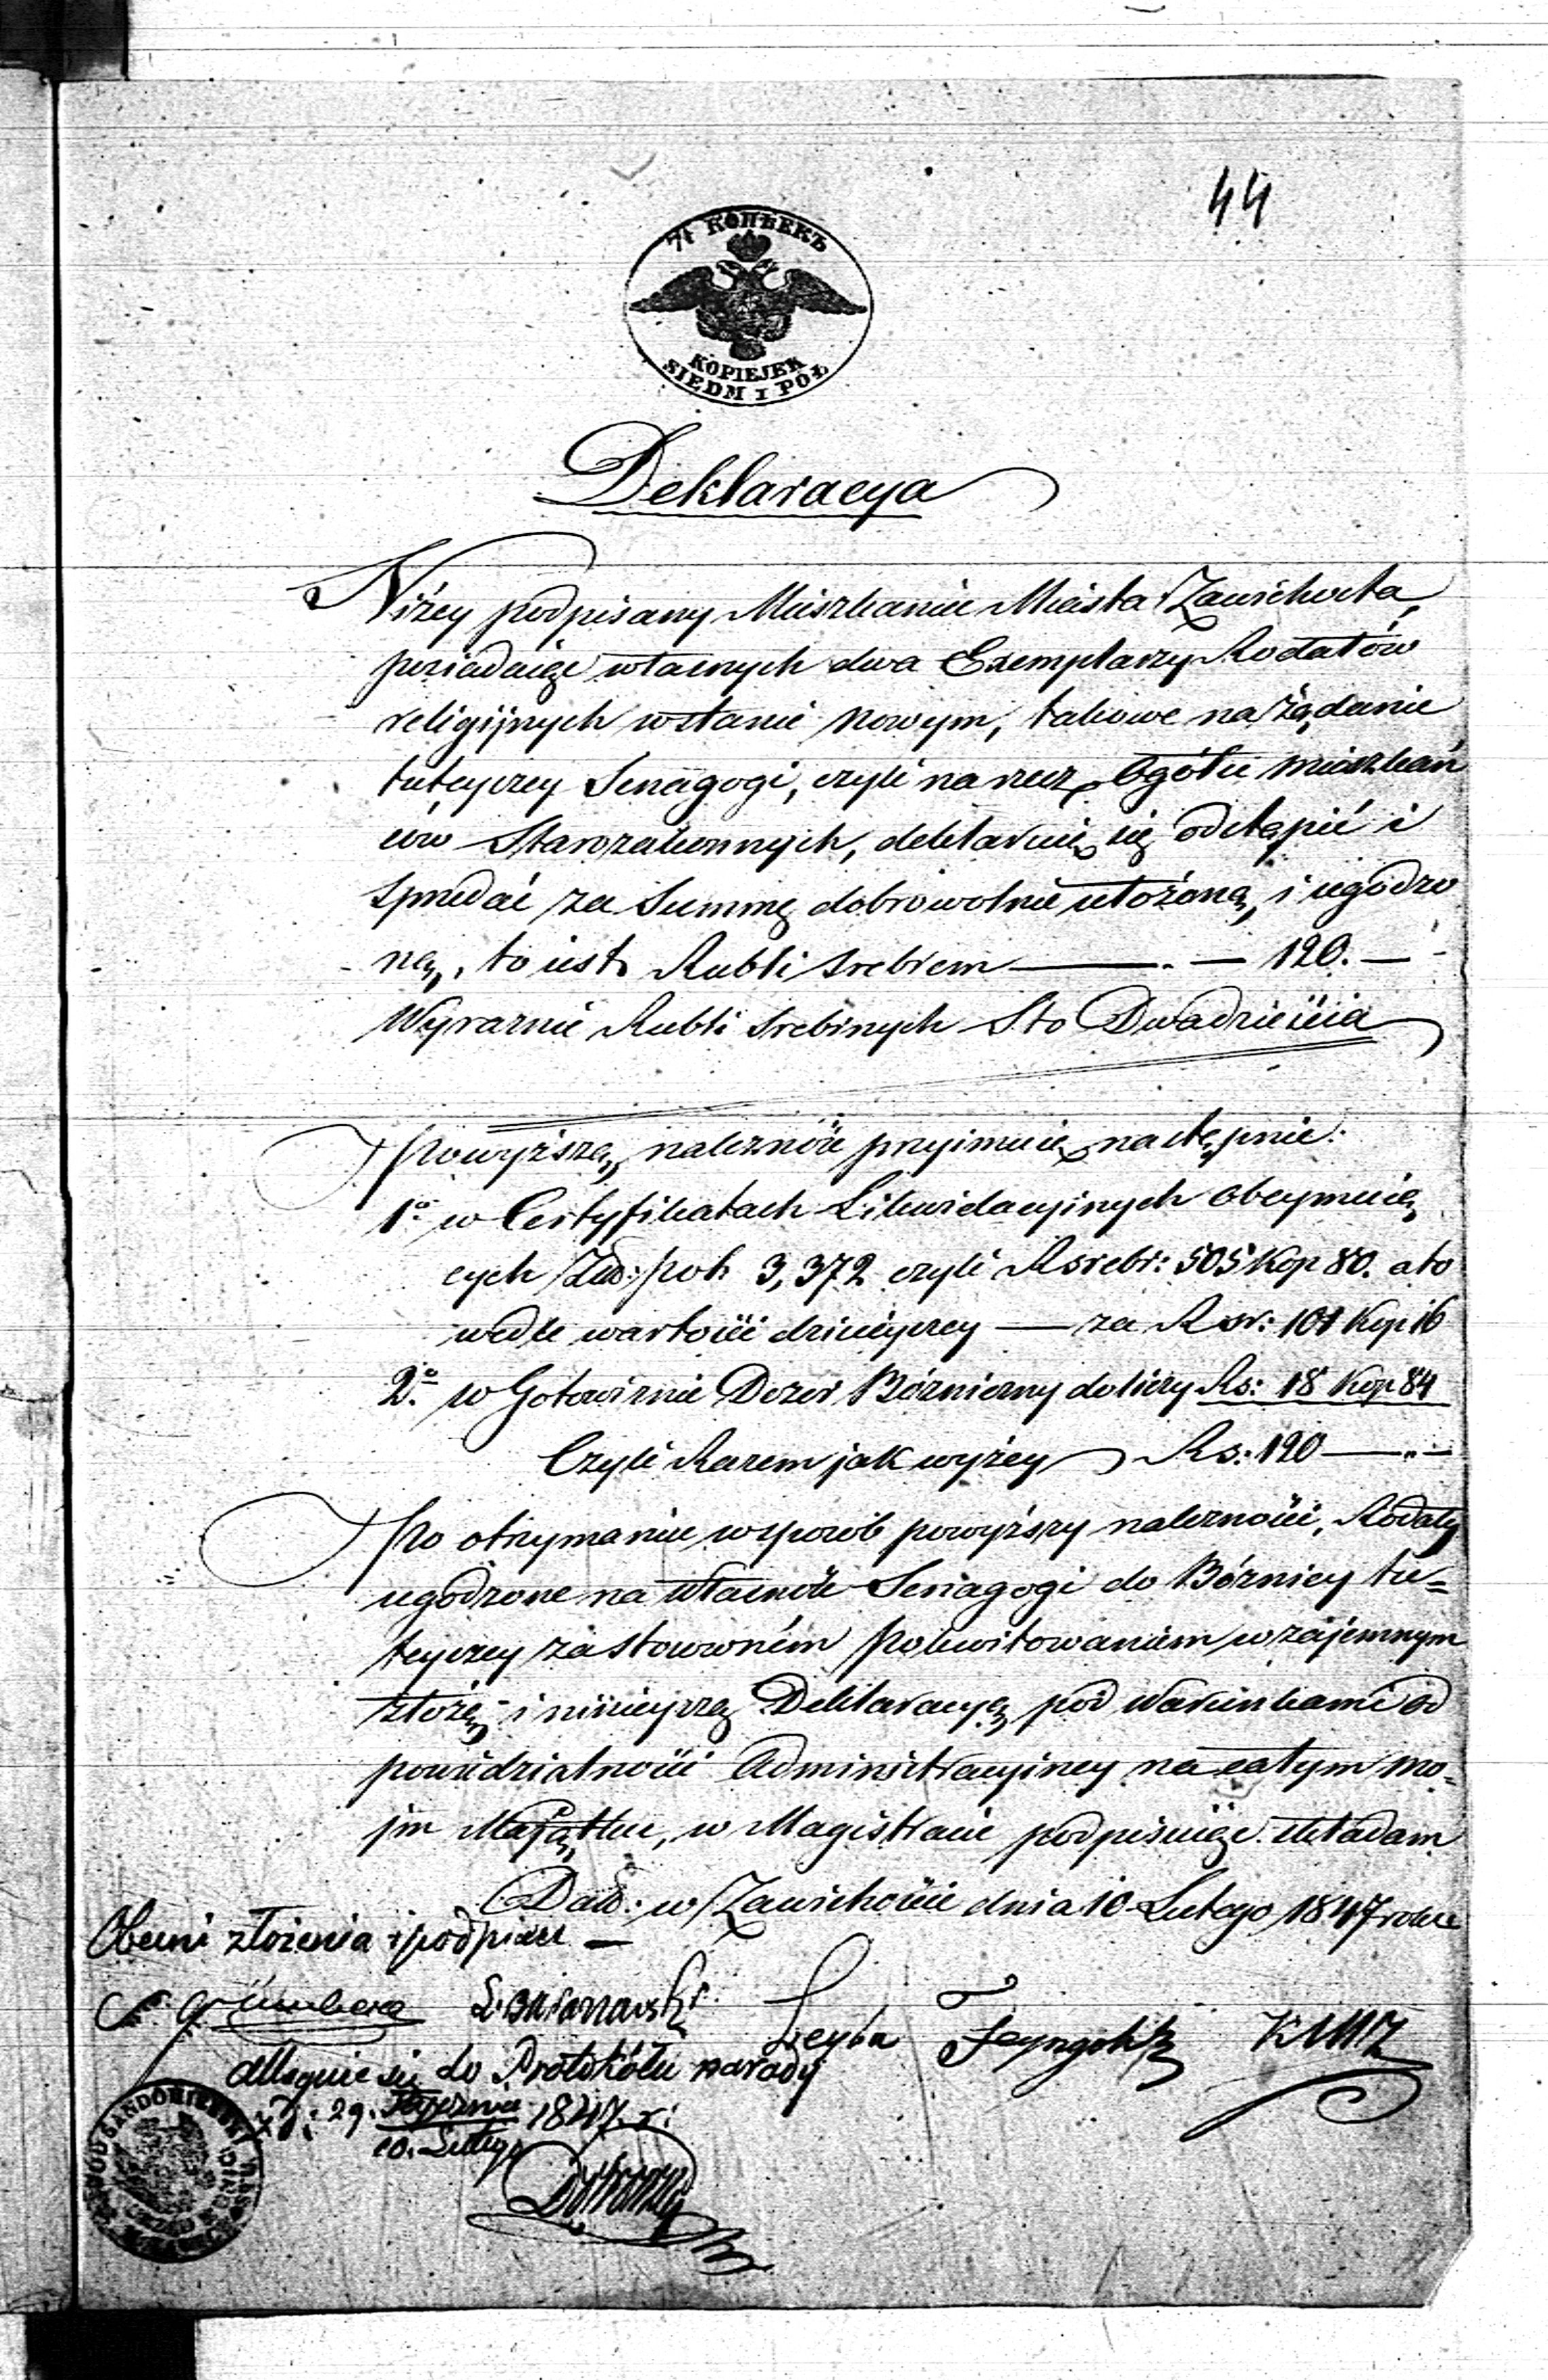 44
7½ КОПѢЕКЪ
KOPIEJEK
SIEDM I PÓŁ
Deklaracya
Niżey podpisany Mieszkaniec Miasta Zawichosta,
posiadaiąc własnych dwa Exemplarzy Rodałów
religijnych w stanie nowym, takowe na żądanie
tuteyszey Senagogi, czyli na rzecz Ogółu mieszkań
ców Starozakonnych, deklaruię się odstąpić i
sprzedać za Summę dobrowolnie ułożoną, i ugodzo
ną, to iest Rubli srebrem — 120. —
Wyraźnie Rubli srebrnych Sto Dwadzieścia
Powyższą należność przyimuię następnie:
1º w Certyfikatach Likwidacyinych obeymuią
cych Złł: pol: 3,372 czyli Rsrebr: 505 Kop 80. a to
wedle wartości dzisieyszey — za Rsr: 101 Kop 16
2º w Gotowiźnie Dozór Bóżniczny doliczy Rs: 18 Kop 84
Czyli Razem jak wyżey Rs: 120 — „ —
Po otrzymaniu w sposób powyższy należności, Rodały
ugodzone na własność Senagogi do Bóżnicy tu=
teyszey za stosowném pokwitowaniem wzajémnym
złożę i ninieyszą Deklaracyą pod warunkami od
powiedzialności Administracyiney na całym mo=
jm Majątku, w Magistracie podpisuiąc składam
Dał: w Zawichoście dnia 10 Lutego 1847 roku
Obecni złożenia i podpisu —
Leyba Feyngold KUNZ
alleguie się do Protokółu narady
z d: 29. Stycznia 1847 r:
10. Lutego